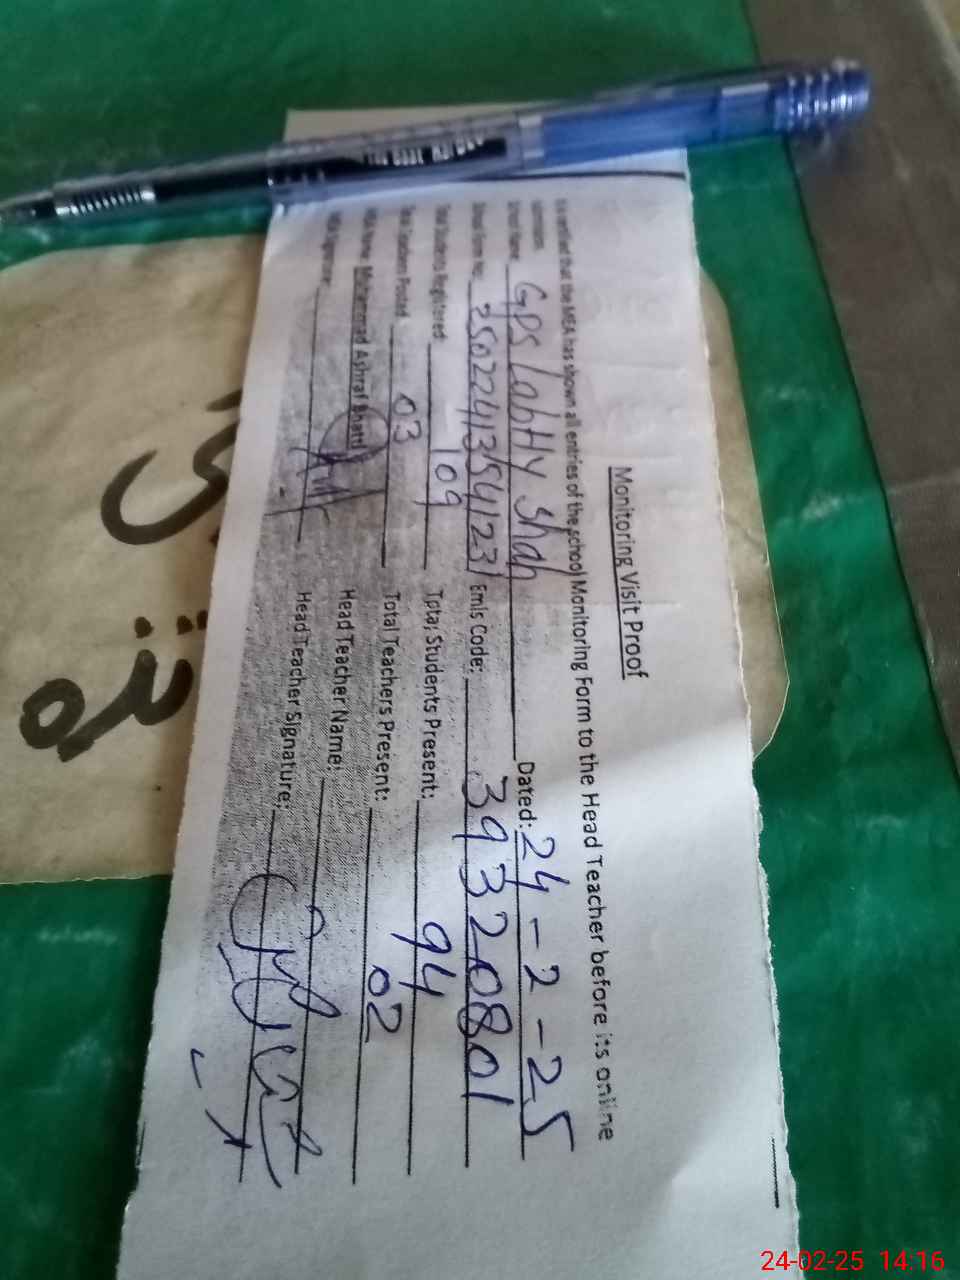 Monitoring Visit Proof
It is certified that the MEA has shown all entries of the school Monitoring Form to the Head Teacher before its online
submission.
School Name Gps Labhy Shah Dated: 24-2-25
School Form no: 2502241354123 Emis Code: 39320801
Total Students Registered: 109 Total Students Present: 94
Total Teachers Posted 03 Total Teachers Present: 02
MEA Name Muhammad Ashraf Bhatti Head Teacher Name:
MEA Signature: Head Teacher Signature:
24-02-25 14:16